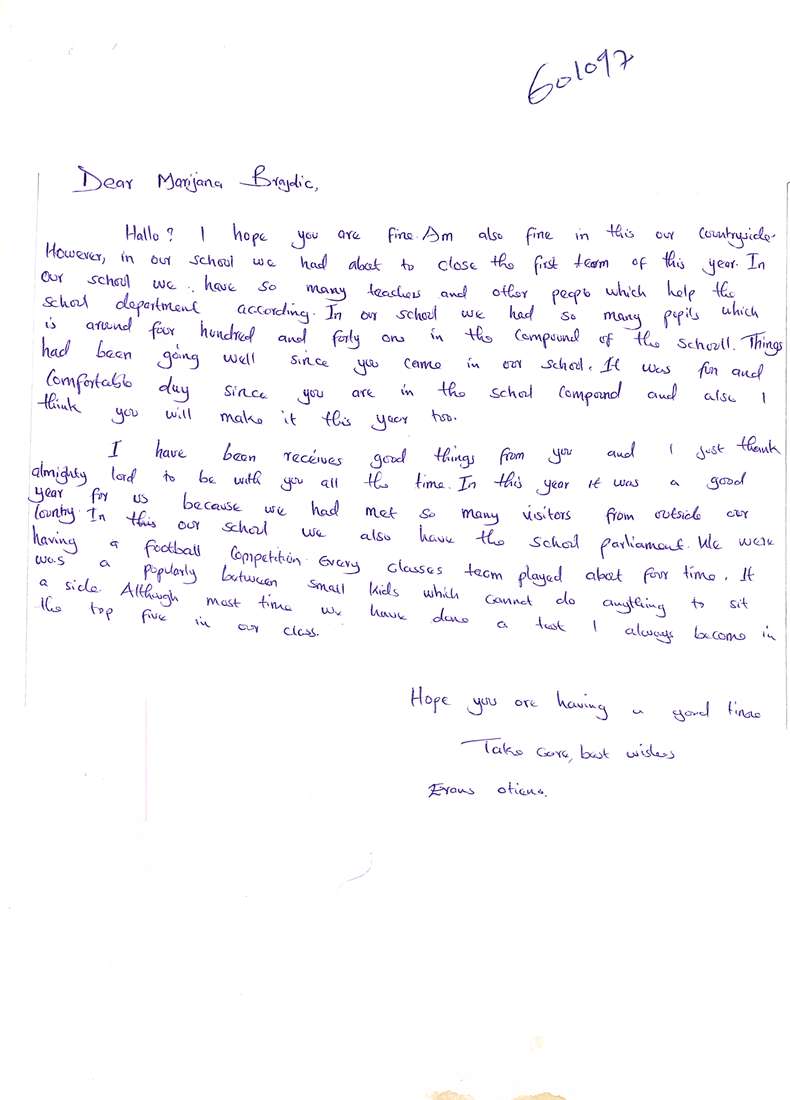 601097
Dear Marijana Brajdic,
Hallo? I hope you are fine. Am also fine in this our countryside.
However, in our school we had abot to close the first team of this year. In
our school we have so many teachers and other peopl which help the
school department according. In our school we had so many pepils which
is around four hundred and forty one in the compound of the schooll. Things
had been going well since you came in our school. It was fun and
comfortable day since you are in the school compound and also I
think you will make it this year too.
I have been receives good things from you and I just thank
almighty lord to be with you all the time. In this year it was a good
year for us because we had met so many visitors from outside our
country. In this our school we also have the school parliament. We were
having a football competition. Every classes team played abot four time. It
was a popularly between small kids which cannot do anything to sit
a side. Although most time we have done a test I always become in
the top five in our class.
Hope you are having a good time
Take care, best wishes
Evans otieno.